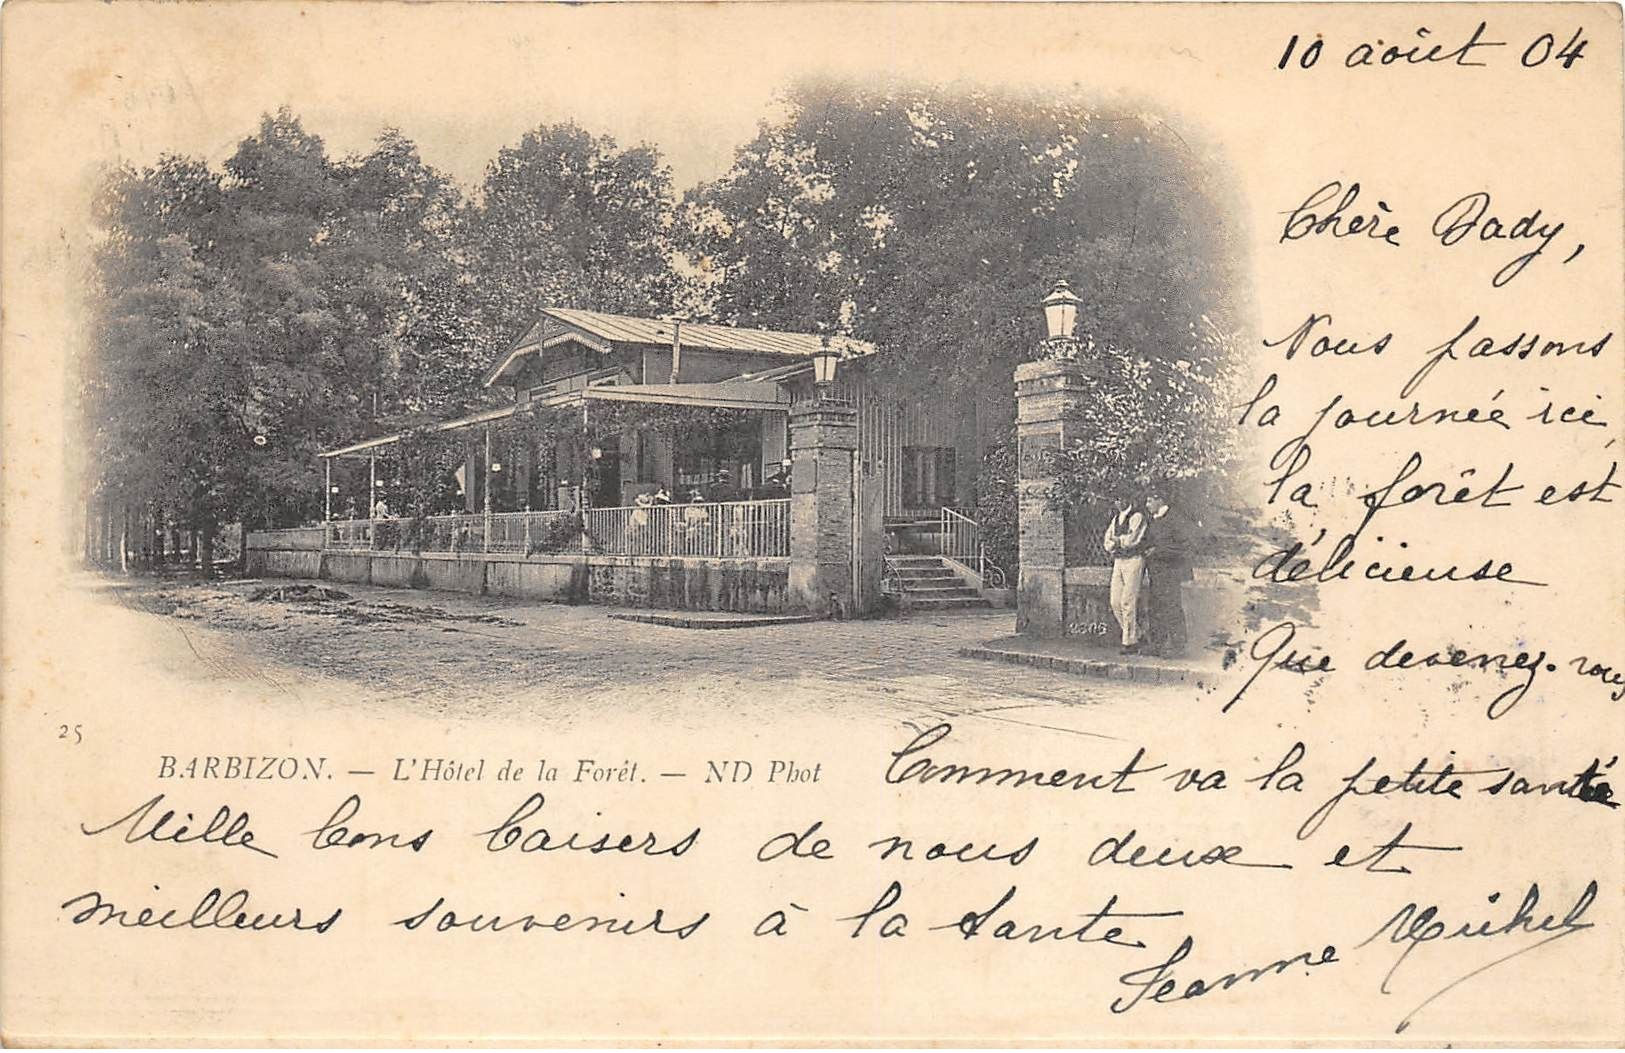 10 août 04
Chère Dady,
Nous passons
la journée ici,
la forêt est
délicieuse
Que devenez-vous
2606
25
BARBIZON. — L'Hôtel de la Forêt. — ND Phot
Comment va la petite santé
Mille bons baisers de nous deux et
meilleurs souvenirs à la tante
Jeanne Michel